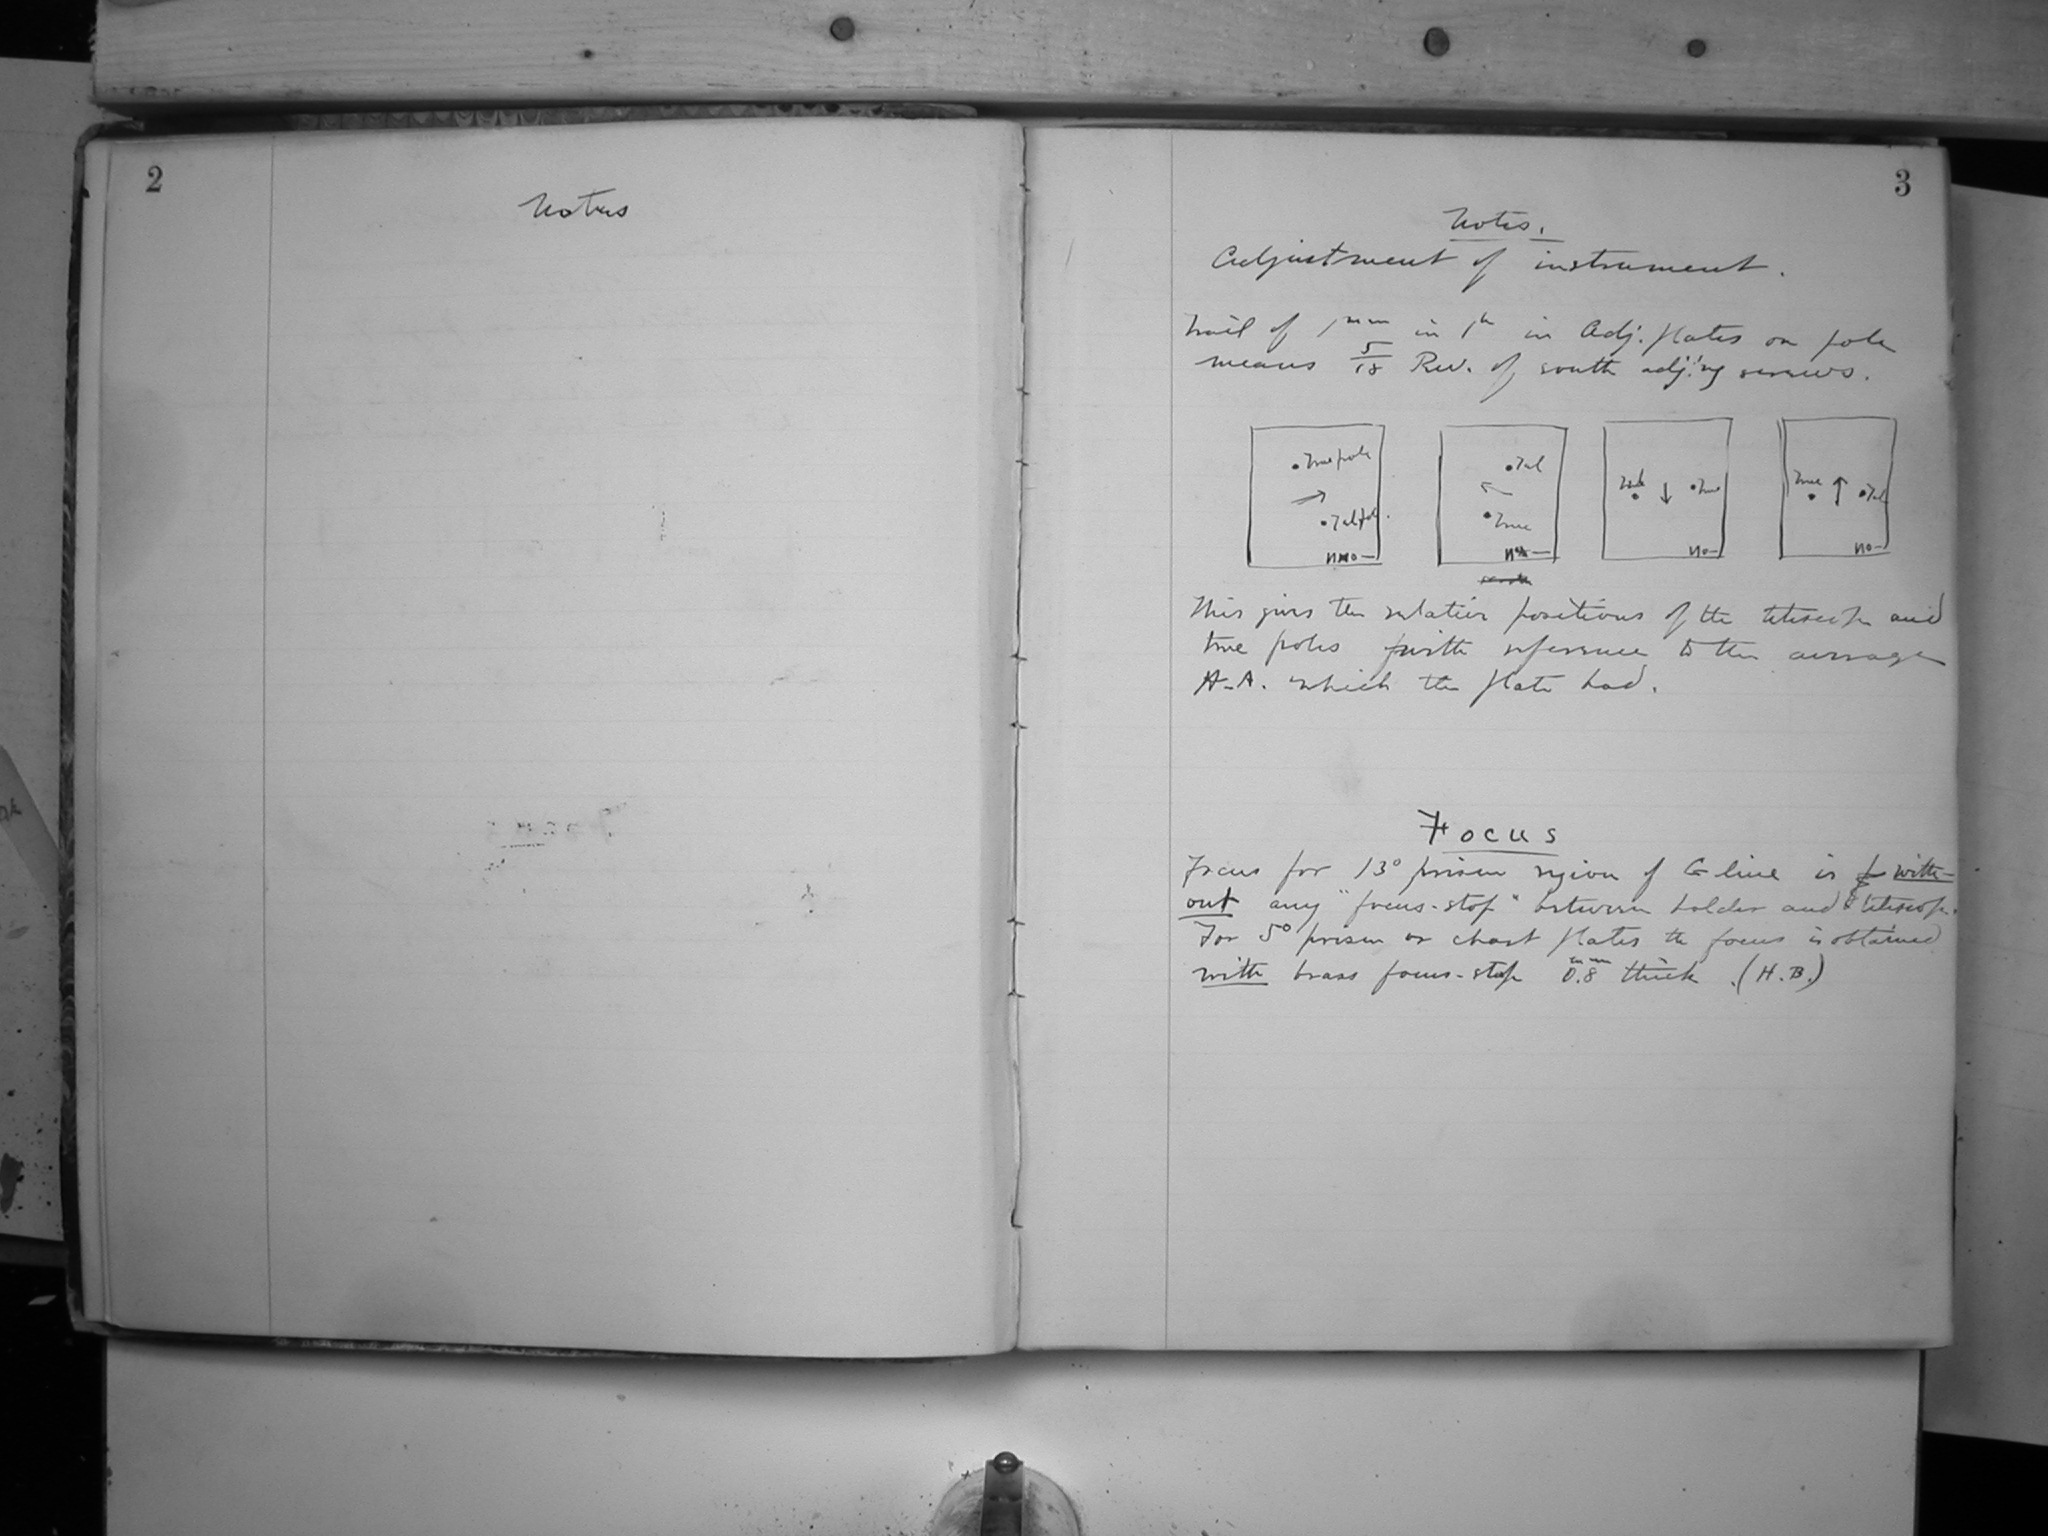 2
Notes
3
Notes.
Adjustment of instrument.
Trail of 1mm in 1h in Adj. plates on pole
means 5/18 Rev. of south adj'ng screws.
True pole
Tel pole.
No
Tel
True
True
No
True
Tel
No
This gives the relative positions of the telescope and
true poles with reference to the average
H.A. which the plate had.
Focus
Focus for 13° prism region of G line is with-
out any "focus-stop" between holder and telescope.
For 5° prism or chart plates the focus is obtained
with brass focus-stop 0.8mm thick. (H.B.)